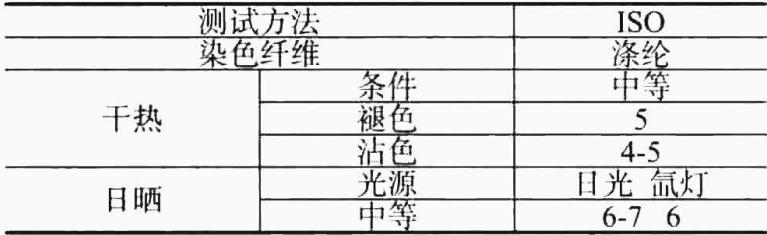 测试方法 ISO
染色纤维 涤纶
干热 条件 中等
褪色 5
沾色 4-5
日晒 光源 日光 氙灯
中等 6-7 6